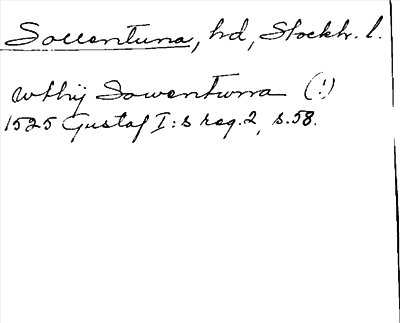 Sollentuna, hd, Stockh. l.
wthij Sowentwna (!)
1525 Gustaf I:s reg. 2, s. 58.